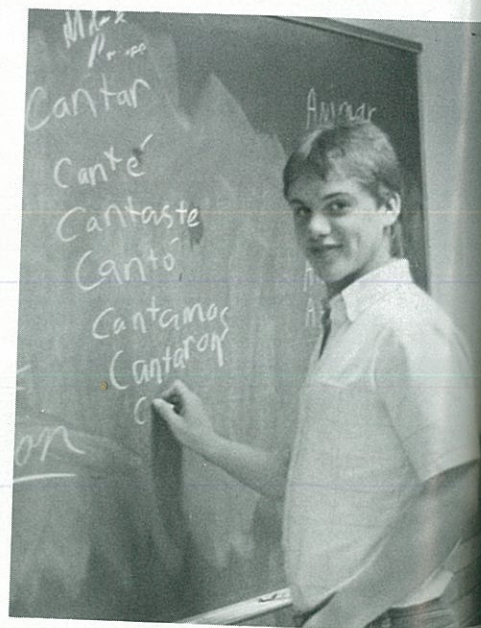 Cantar
Canté
Cantaste
Cantó
Cantamos
Cantaron
C
on
Animar
A
A